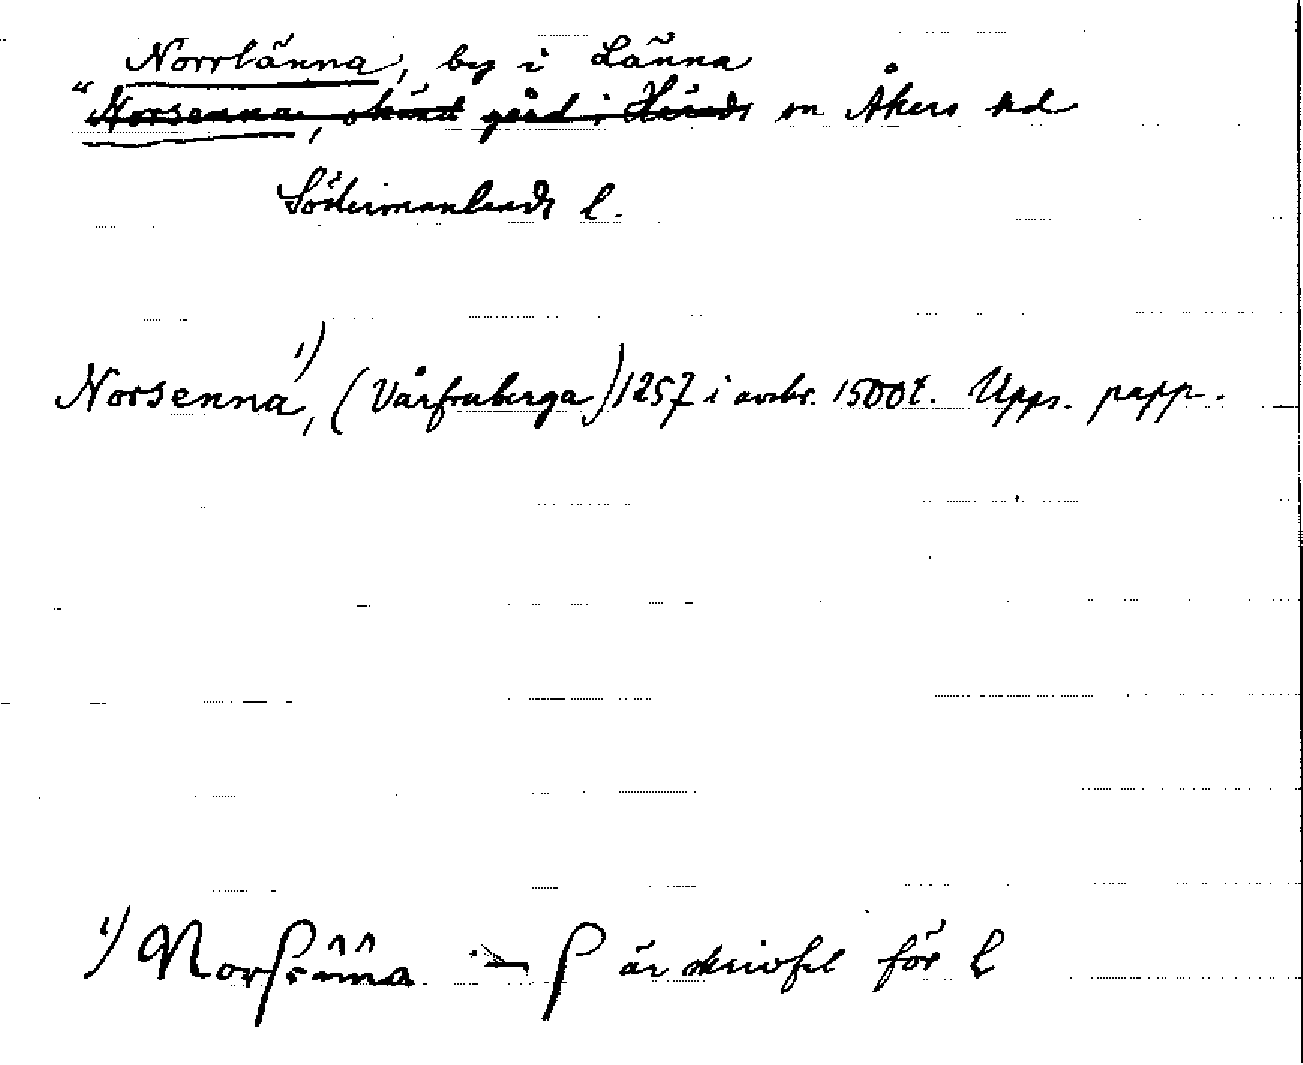 Norrlänna, by i Länna
"Norsenna, okänd gård i Härads sn Åkers hd
Södermanlands l.
Norsenna, ¹⁾ (Vårfruberga) 1257 i avskr. 1500t. Upps. papp.
¹⁾ Norſenna – ſ är skrivfel för l